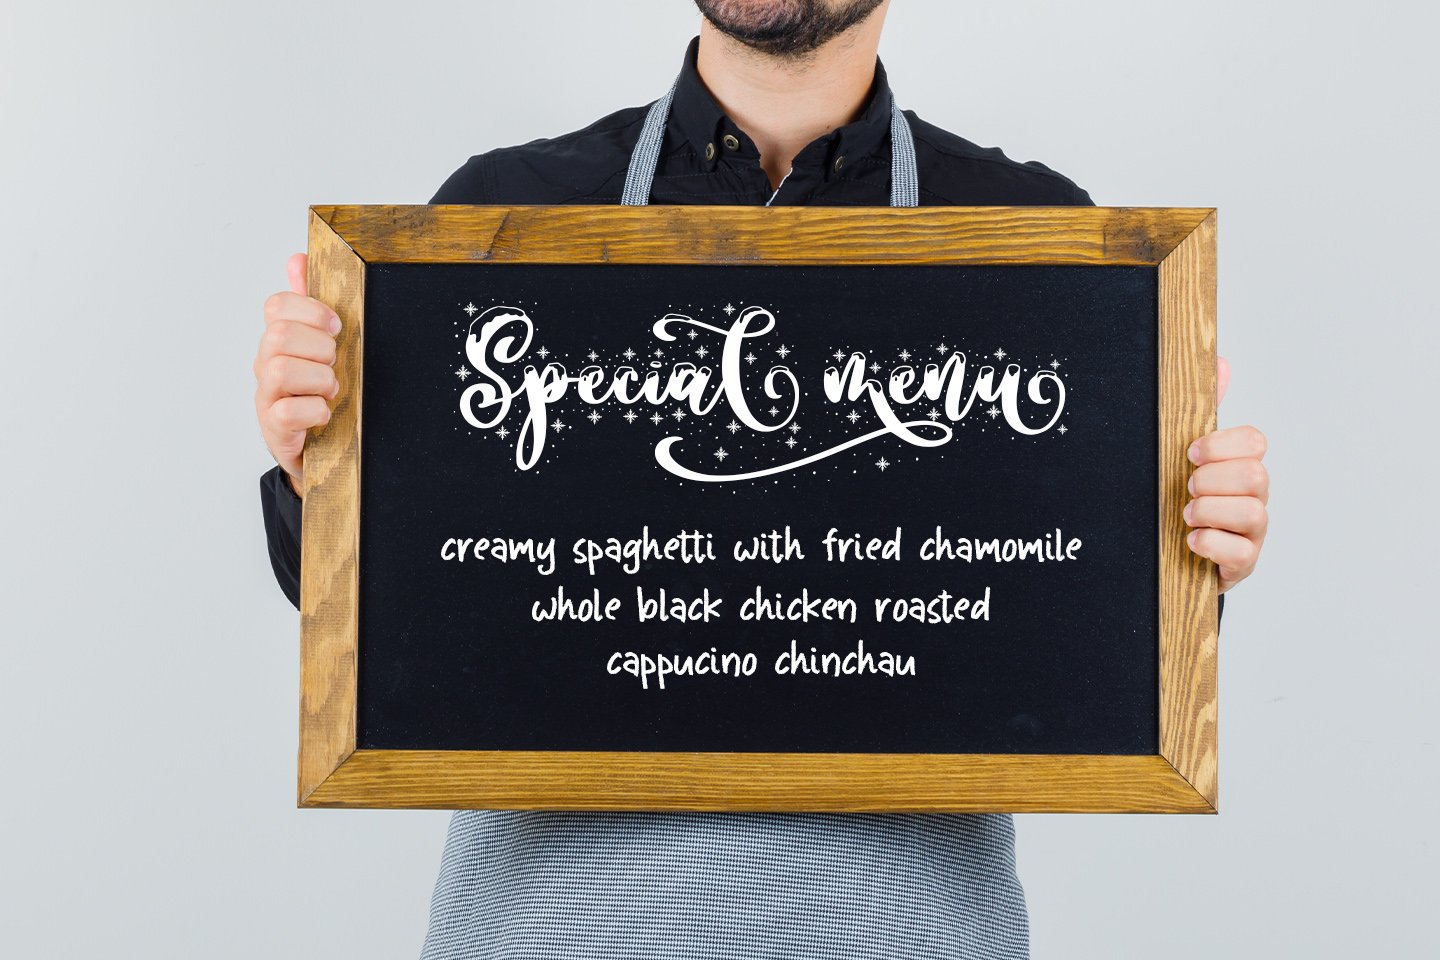 Special menu
creamy spaghetti with fried chamomile
whole black chicken roasted
cappucino chinchau